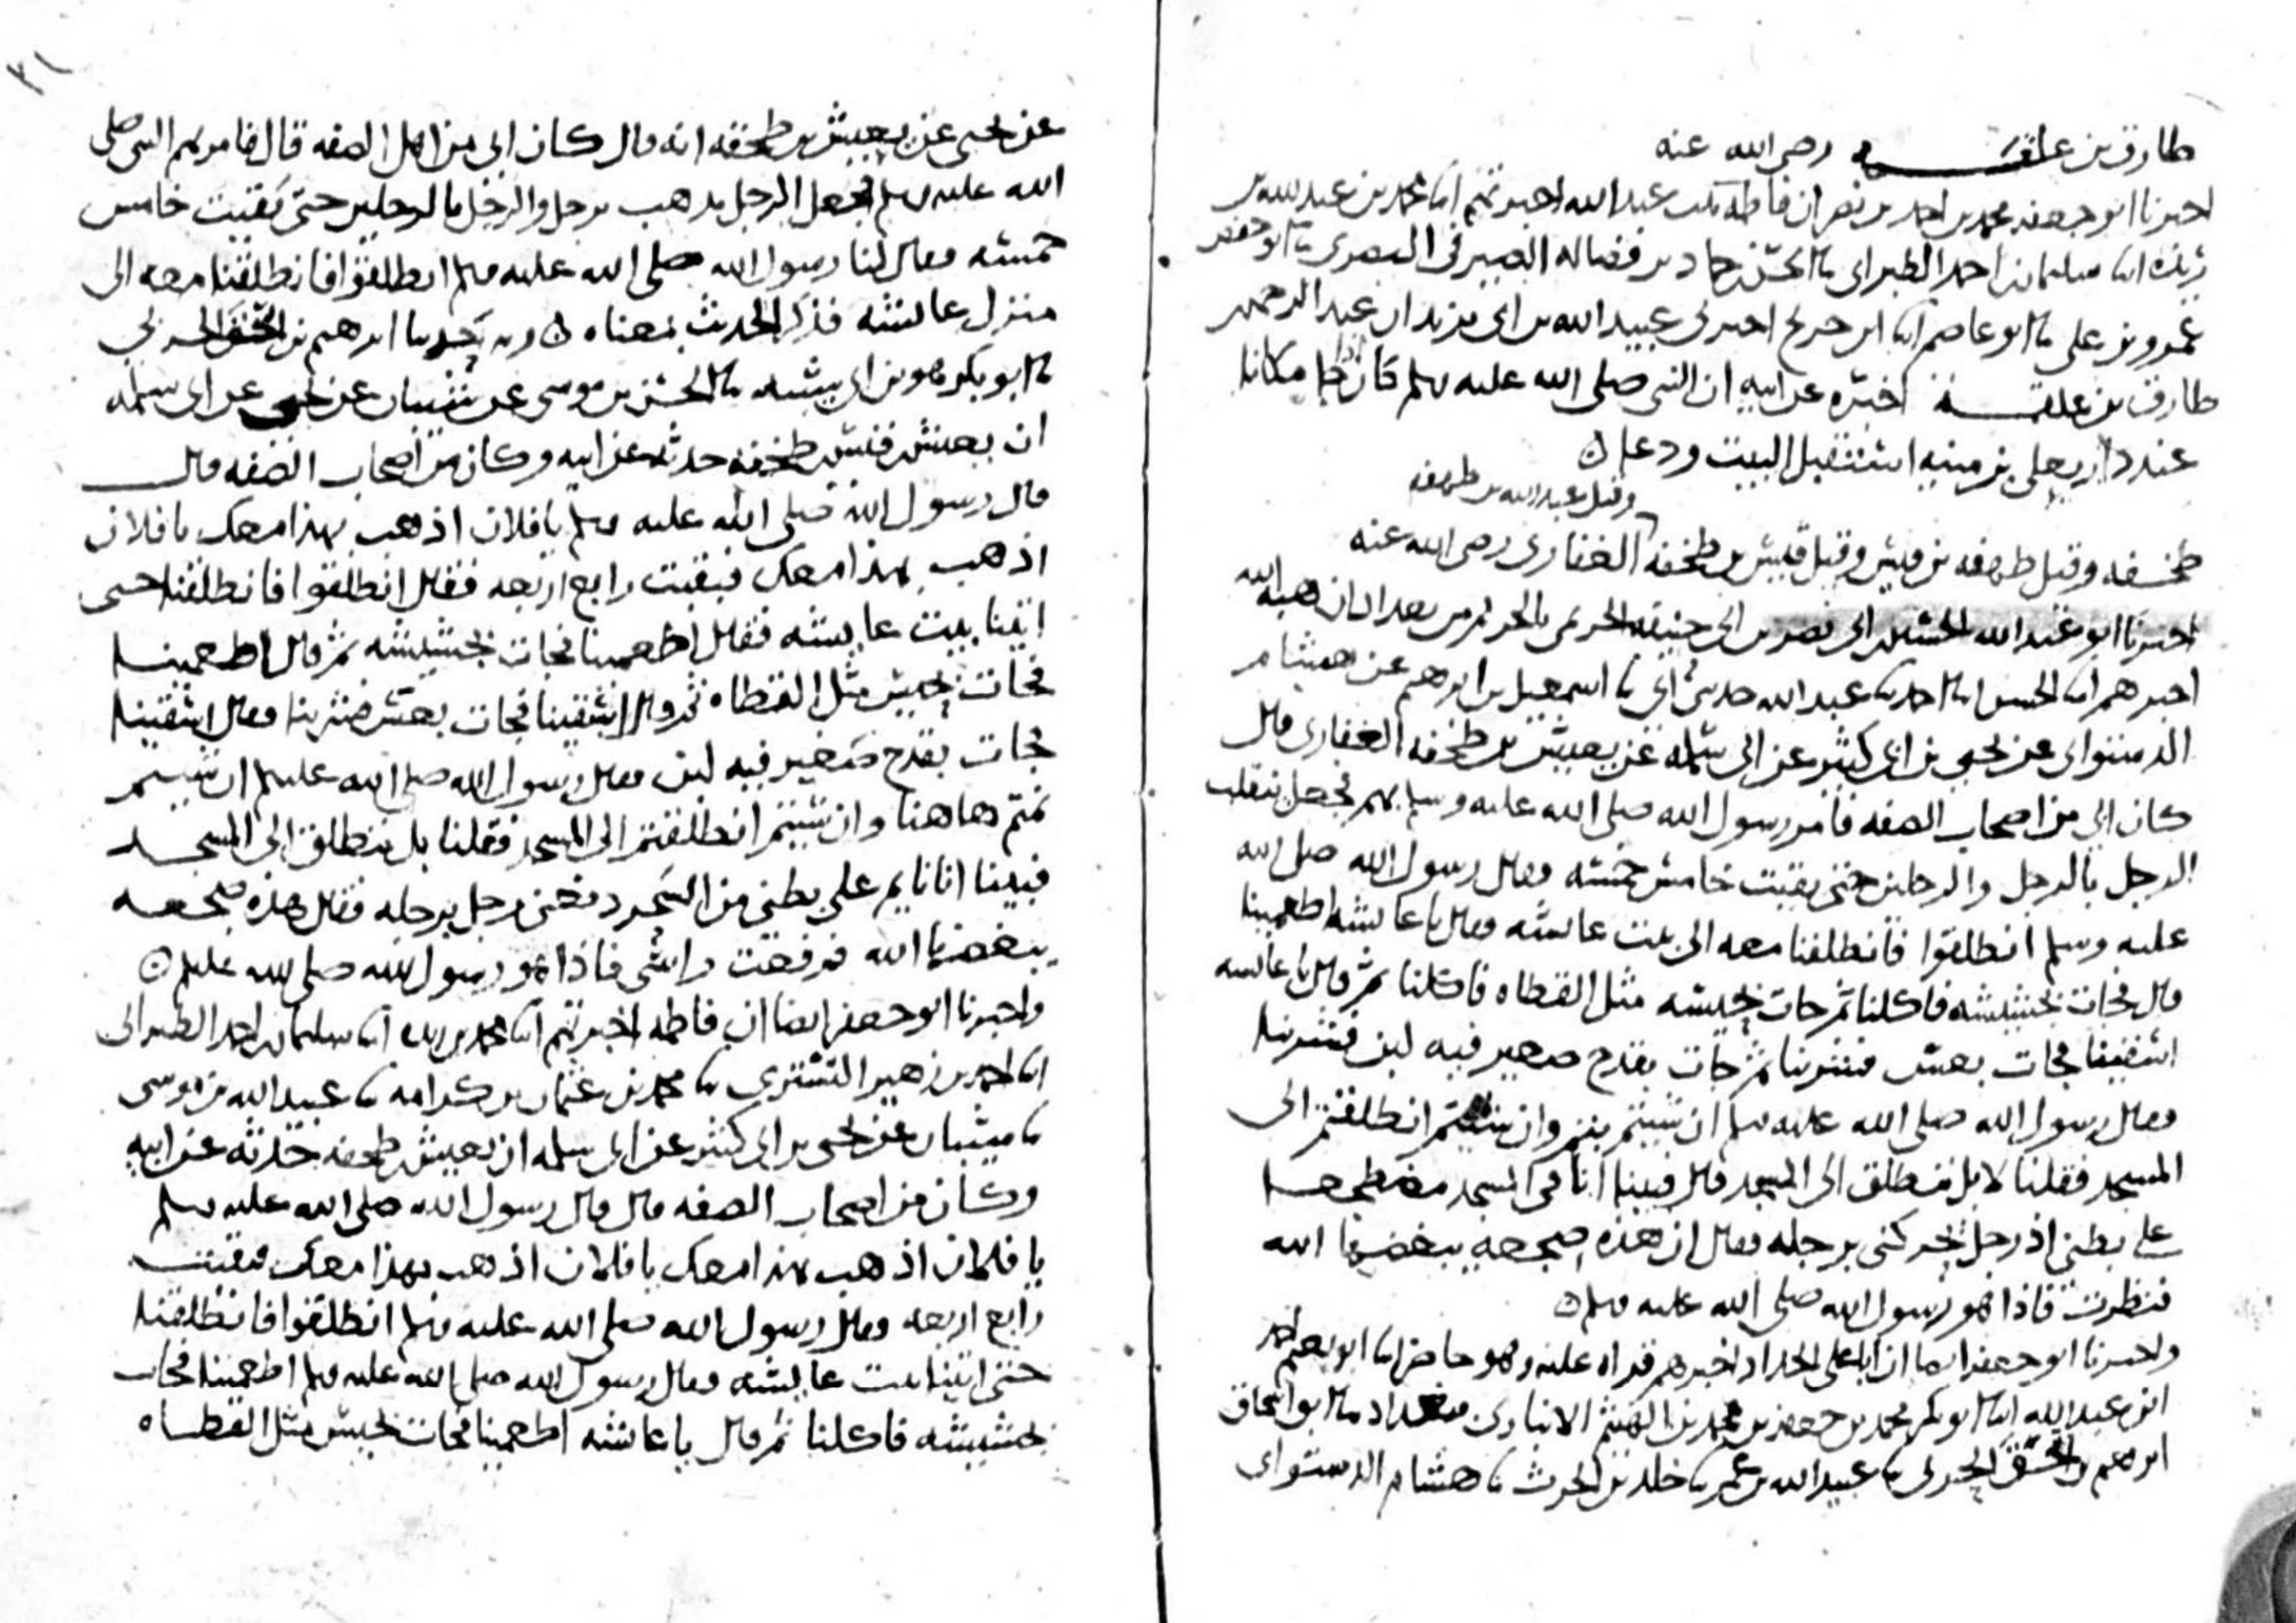 طارق بن علقمه رضى الله عنه
اخبرنا ابو جعفر محمد بن احمد بن نصر ان فاطمه بنت عبد الله اخبرتهم ابنا محمد بن عبد الله بن
ريذه ابنا سليمان بن احمد الطبرانى ثنا الحسن بن حماد بن فضاله الصيرفى البصرى ثنا ابو حفص
عمرو بن على ثنا ابو عاصم ابنا ابن جريج اخبرنى عبيد الله بن ابى يزيد ان عبد الرحمن بن
طارق بن علقمه اخبره عن ابيه ان النبى صلى الله عليه وسلم كان اذا مكانا
عند دار يعلى بن منيه استقبل البيت ودعا
وقيل عبد الله بن طهفه
طخفه وقيل طهفه بن قيس وقيل قيس بن طخفه الغفارى رضى الله عنه
اخبرنا ابو عبد الله الحسين بن ابى نصر بن ابى حنيفه الحريمى بالحريم من بغداد ان هبه الله
اخبرهم ابنا الحسن ابنا احمد ثنا عبد الله حدثنى ابى ثنا اسمعيل بن ابرهيم عن هشام
الدستوائى عن يحيى بن ابى كثير عن ابى سلمه عن يعيش بن طخفه الغفارى قال
كان ابى من اصحاب الصفه فامر رسول الله صلى الله عليه وسلم بهم فجعل ينقلب
الرجل بالرجل والرجلين حتى بقيت خامس خمسه فقال رسول الله صلى الله
عليه وسلم انطلقوا فانطلقنا معه الى بيت عائشه فقال يا عائشه اطعمينا
قال فجات بجشيشه فاكلنا ثم جات بحيسه مثل القطاه فاكلنا ثم قال يا عائشه
اسقينا فجات بعس فشربنا ثم جات بقدح صغير فيه لبن فشربنا
فقال رسول الله صلى الله عليه وسلم ان شيتم بتم وان شيتم انطلقتم الى
المسجد فقلنا لا بل ننطلق الى المسجد قال فبينا انا فى المسجد مضطجعا
على بطنى اذ رجل يحركنى برجله فقال ان هذه ضجعه يبغضها الله
فنظرت فاذا هو رسول الله صلى الله عليه وسلم
واخبرنا ابو جعفر ايضا ان ابا على الحداد اخبرهم قراه عليه وهو حاضر ابنا ابو نعيم احمد
ابن عبد الله ابنا ابو بكر محمد بن جعفر بن محمد بن الهيثم الانبارى ببغداد ثنا ابو اسحاق
ابرهيم بن اسحق الحربى ثنا عبيد الله بن عمر ثنا خلد بن الحرث ثنا هشام الدستوائى
٣١
عن يحيى عن يعيش بن طخفه انه قال كان ابى من اهل الصفه قال فامر بهم النبى صلى
الله عليه وسلم فجعل الرجل يذهب برجل والرجل بالرجلين حتى بقيت خامس
خمسه فقال لنا رسول الله صلى الله عليه وسلم انطلقوا فانطلقنا معه الى
منزل عائشه فذكر الحديث بمعناه وبه حدثنا ابرهيم بن اسحق الحربى
ثنا ابو بكر هو بن ابى شيبه ثنا الحسن بن موسى عن شيبان عن يحيى عن ابى سلمه
ان يعيش بن قيس بن طخفه حدثه عن ابيه وكان من اصحاب الصفه قال
قال رسول الله صلى الله عليه وسلم يا فلان اذهب بهذا معك يا فلان
اذهب بهذا معك فبقيت رابع اربعه فقال انطلقوا فانطلقنا حتى
اتينا بيت عايشه فقال اطعمينا فجات بجشيشه ثم قال اطعمينا
فجات بحيس مثل القطاه ثم قال اسقينا فجات بعس فشربنا وقال اسقينا
فجات بقدح صغير فيه لبن فقال رسول الله صلى الله عليه وسلم ان شيتم
نمتم هاهنا وان شيتم انطلقتم الى المسجد فقلنا بل ننطلق الى المسجد
فبينا انا نايم على بطنى من السحر دفعنى رجل برجله فقال هذه ضجعه
يبغضها الله فرفعت راسى فاذا هو رسول الله صلى الله عليه وسلم
واخبرنا ابو جعفر ايضا ان فاطمه اخبرتهم ابنا محمد بن ريذه ابنا سليمان بن احمد الطبرانى
ابنا احمد بن زهير التسترى ثنا محمد بن عثمان بن كرامه ثنا عبيد الله بن موسى
ثنا شيبان عن يحيى بن ابى كثير عن ابى سلمه ان يعيش بن طخفه حدثه عن ابيه
وكان من اصحاب الصفه قال قال رسول الله صلى الله عليه وسلم
يا فلان اذهب بهذا معك يا فلان اذهب بهذا معك فبقيت
رابع اربعه وقال رسول الله صلى الله عليه وسلم انطلقوا فانطلقنا
حتى اتينا بيت عايشه فقال رسول الله صلى الله عليه وسلم اطعمينا فجات
بجشيشه فاكلنا ثم قال يا عائشه اطعمينا فجات بحيس مثل القطاه